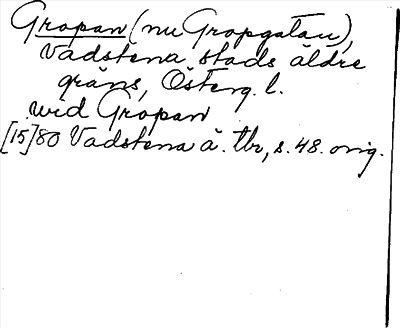 Gropan (nu Gropgatan),
Vadstena stads äldre
gräns, Österg. l.
wid Gropan
[15]80 Vadstena ä. tbr, s. 48. orig.